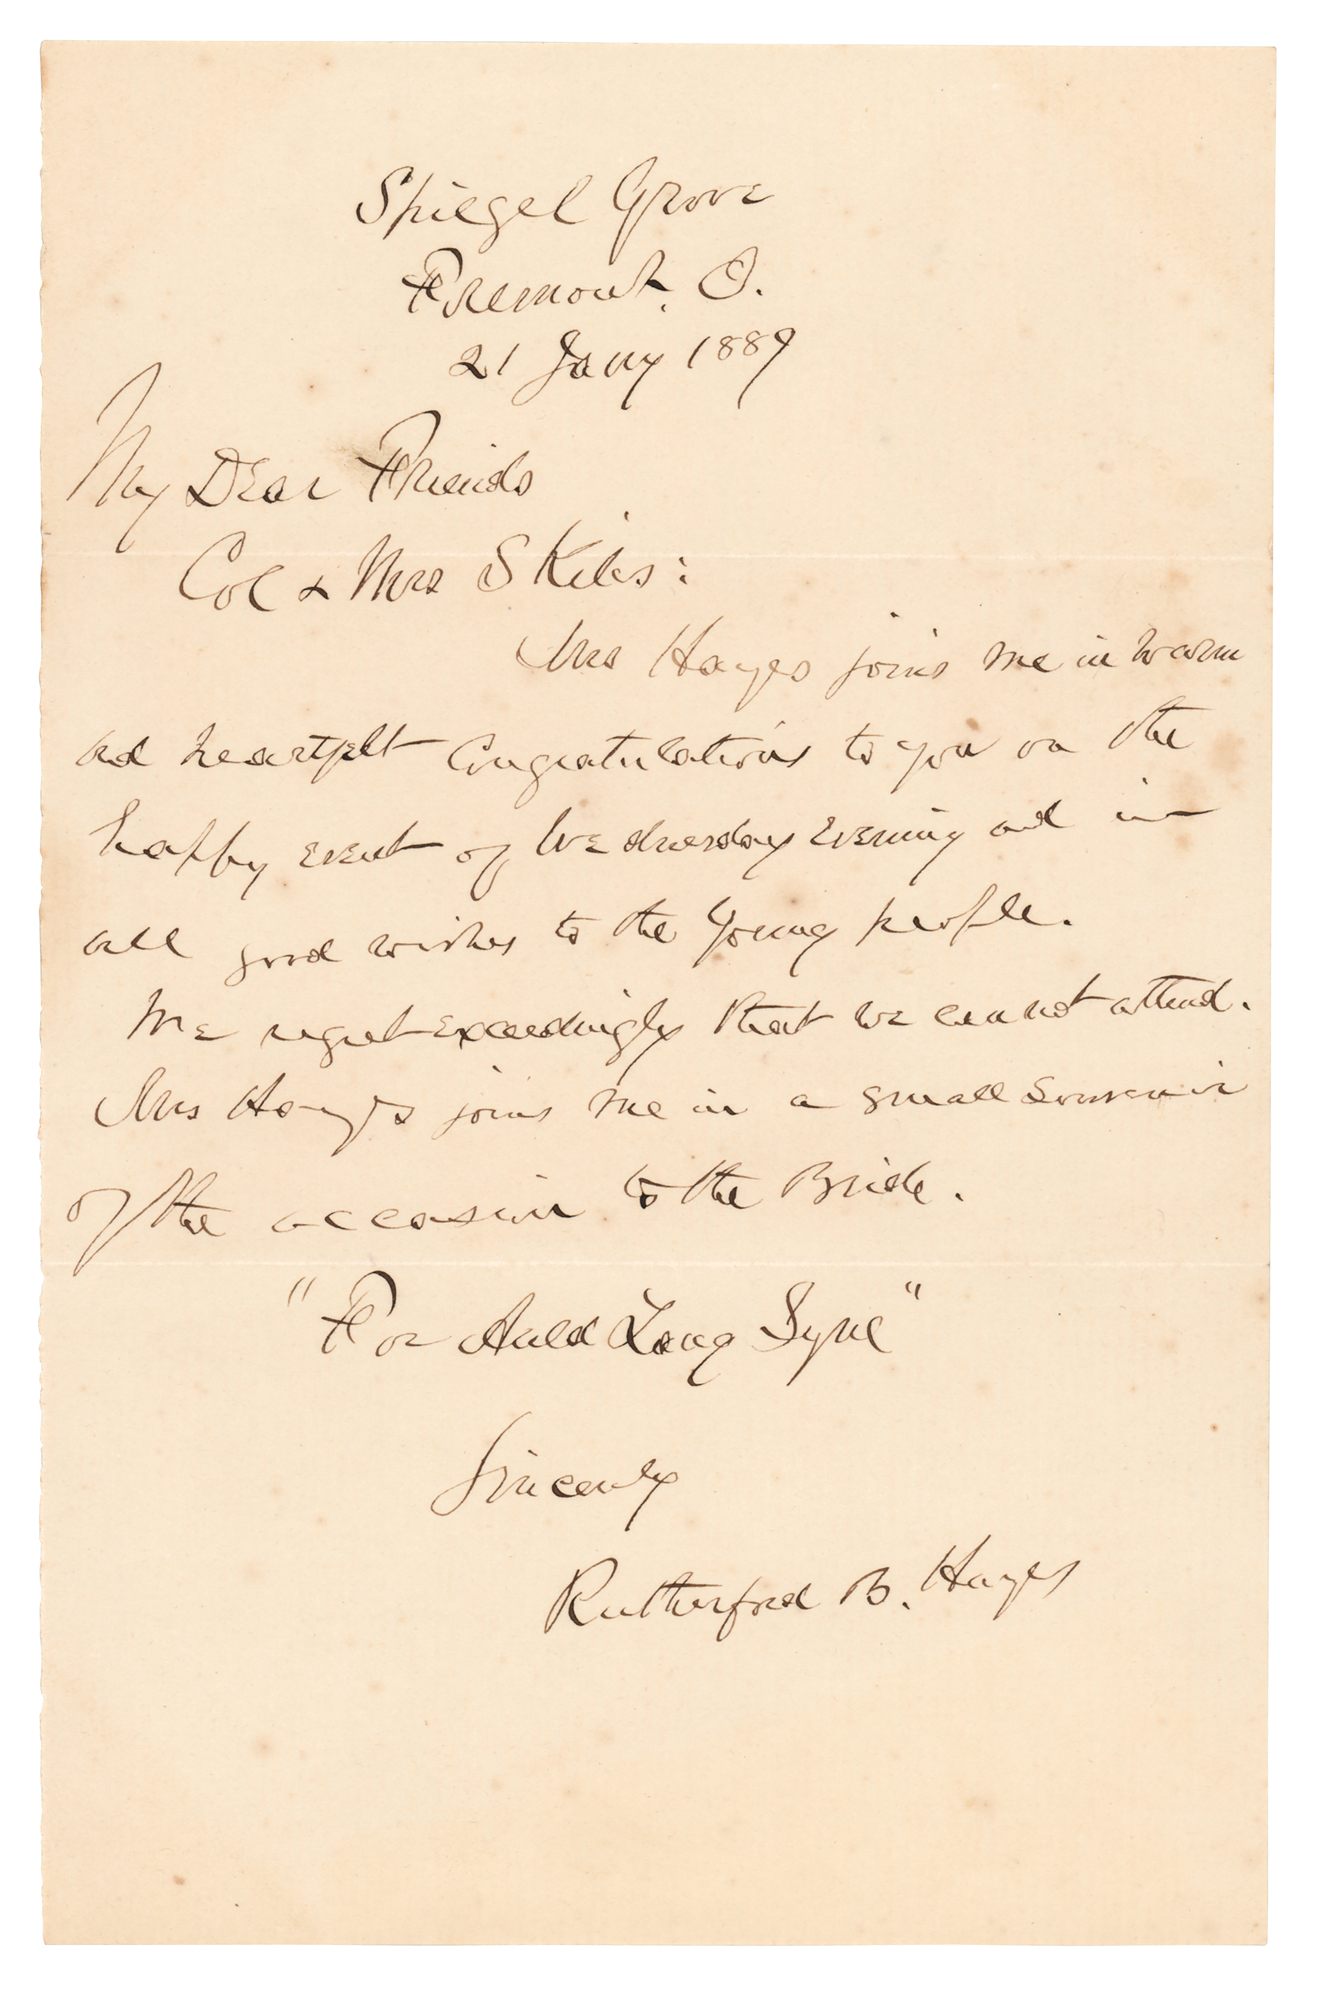 Spiegel Grove
Fremont, O.
21 Jany 1889
My Dear Friends
Col & Mrs Skiles:
Mrs Hayes joins me in warm
and heartfelt congratulations to you on the
happy event of Wednesday Evening and in
all good wishes to the young people.
We regret exceedingly that we can not attend.
Mrs Hayes joins me in a small souvenir
of the occasion to the Bride.
"For Auld Lang Syne"
Sincerely
Rutherford B. Hayes